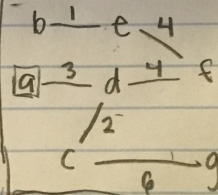 b 1 e 4
a 3 d 4 f
2
c 6 g